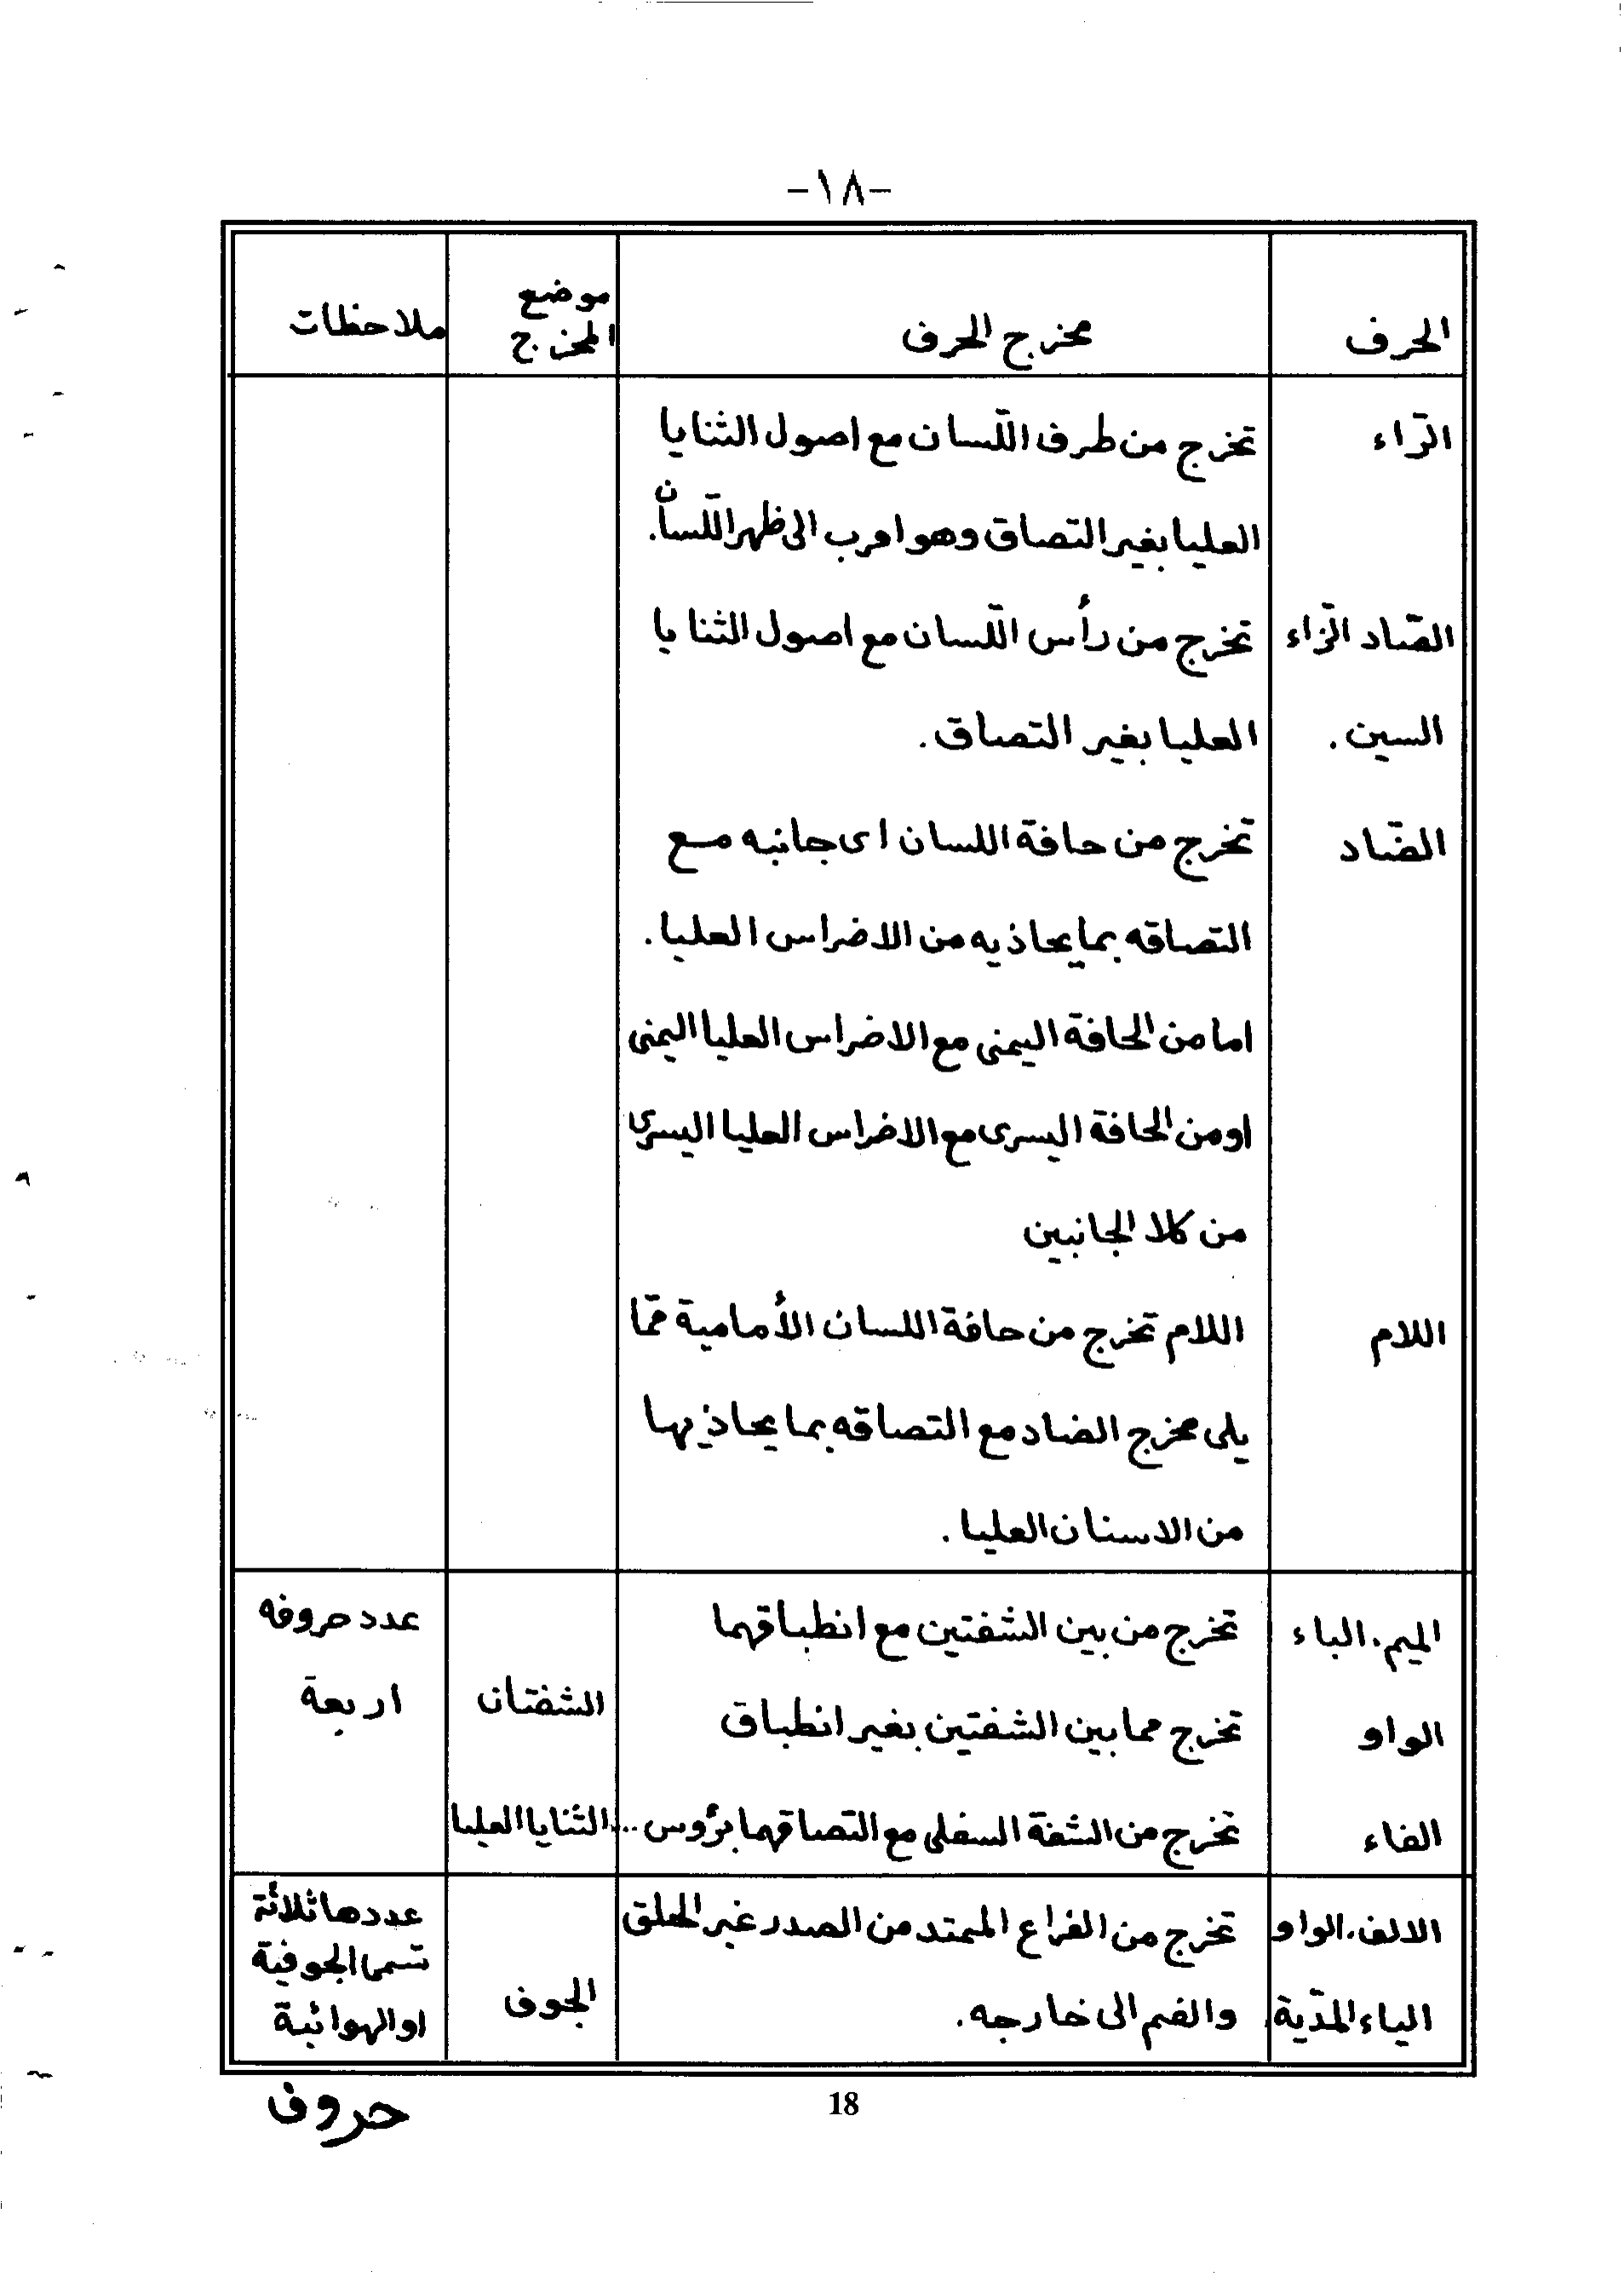 -١٨-
الحرف مخرج الحرف موضع المخرج ملاحظات
الرّاء تخرج من طرف اللّسان مع اصول الثنايا
العليا بغير التصاق وهو اقرب الى ظهر اللّسان.
الصّاد الزّاء تخرج من رأس اللّسان مع اصول الثنايا
السين. العليا بغير التصاق.
الضّاد تخرج من حافة اللسان اى جانبه مع
التصاقه بما يحاذيه من الاضراس العليا.
اما من الحافة اليمنى مع الاضراس العليا اليمنى
او من الحافة اليسرى مع الاضراس العليا اليسرى
من كلا الجانبين
اللام اللام تخرج من حافة اللسان الأمامية ممّا
يلى مخرج الضاد مع التصاقه بما يحاذيها
من الاسنان العليا.
الميم. الباء تخرج من بين الشفتين مع انطباقهما عدد حروفه
الواو تخرج مما بين الشفتين بغير انطباق الشفتان اربعة
الفاء تخرج من الشفة السفلى مع التصاقهما برؤس ... الثنايا العليا
الالف. الواو تخرج من الفراع الممتد من الصدر غبر الحلق عددها ثلاثة
الياء المدّية. والفم الى خارجه. الجوف تسمى الجوفية
او الهوائية
18
حروف